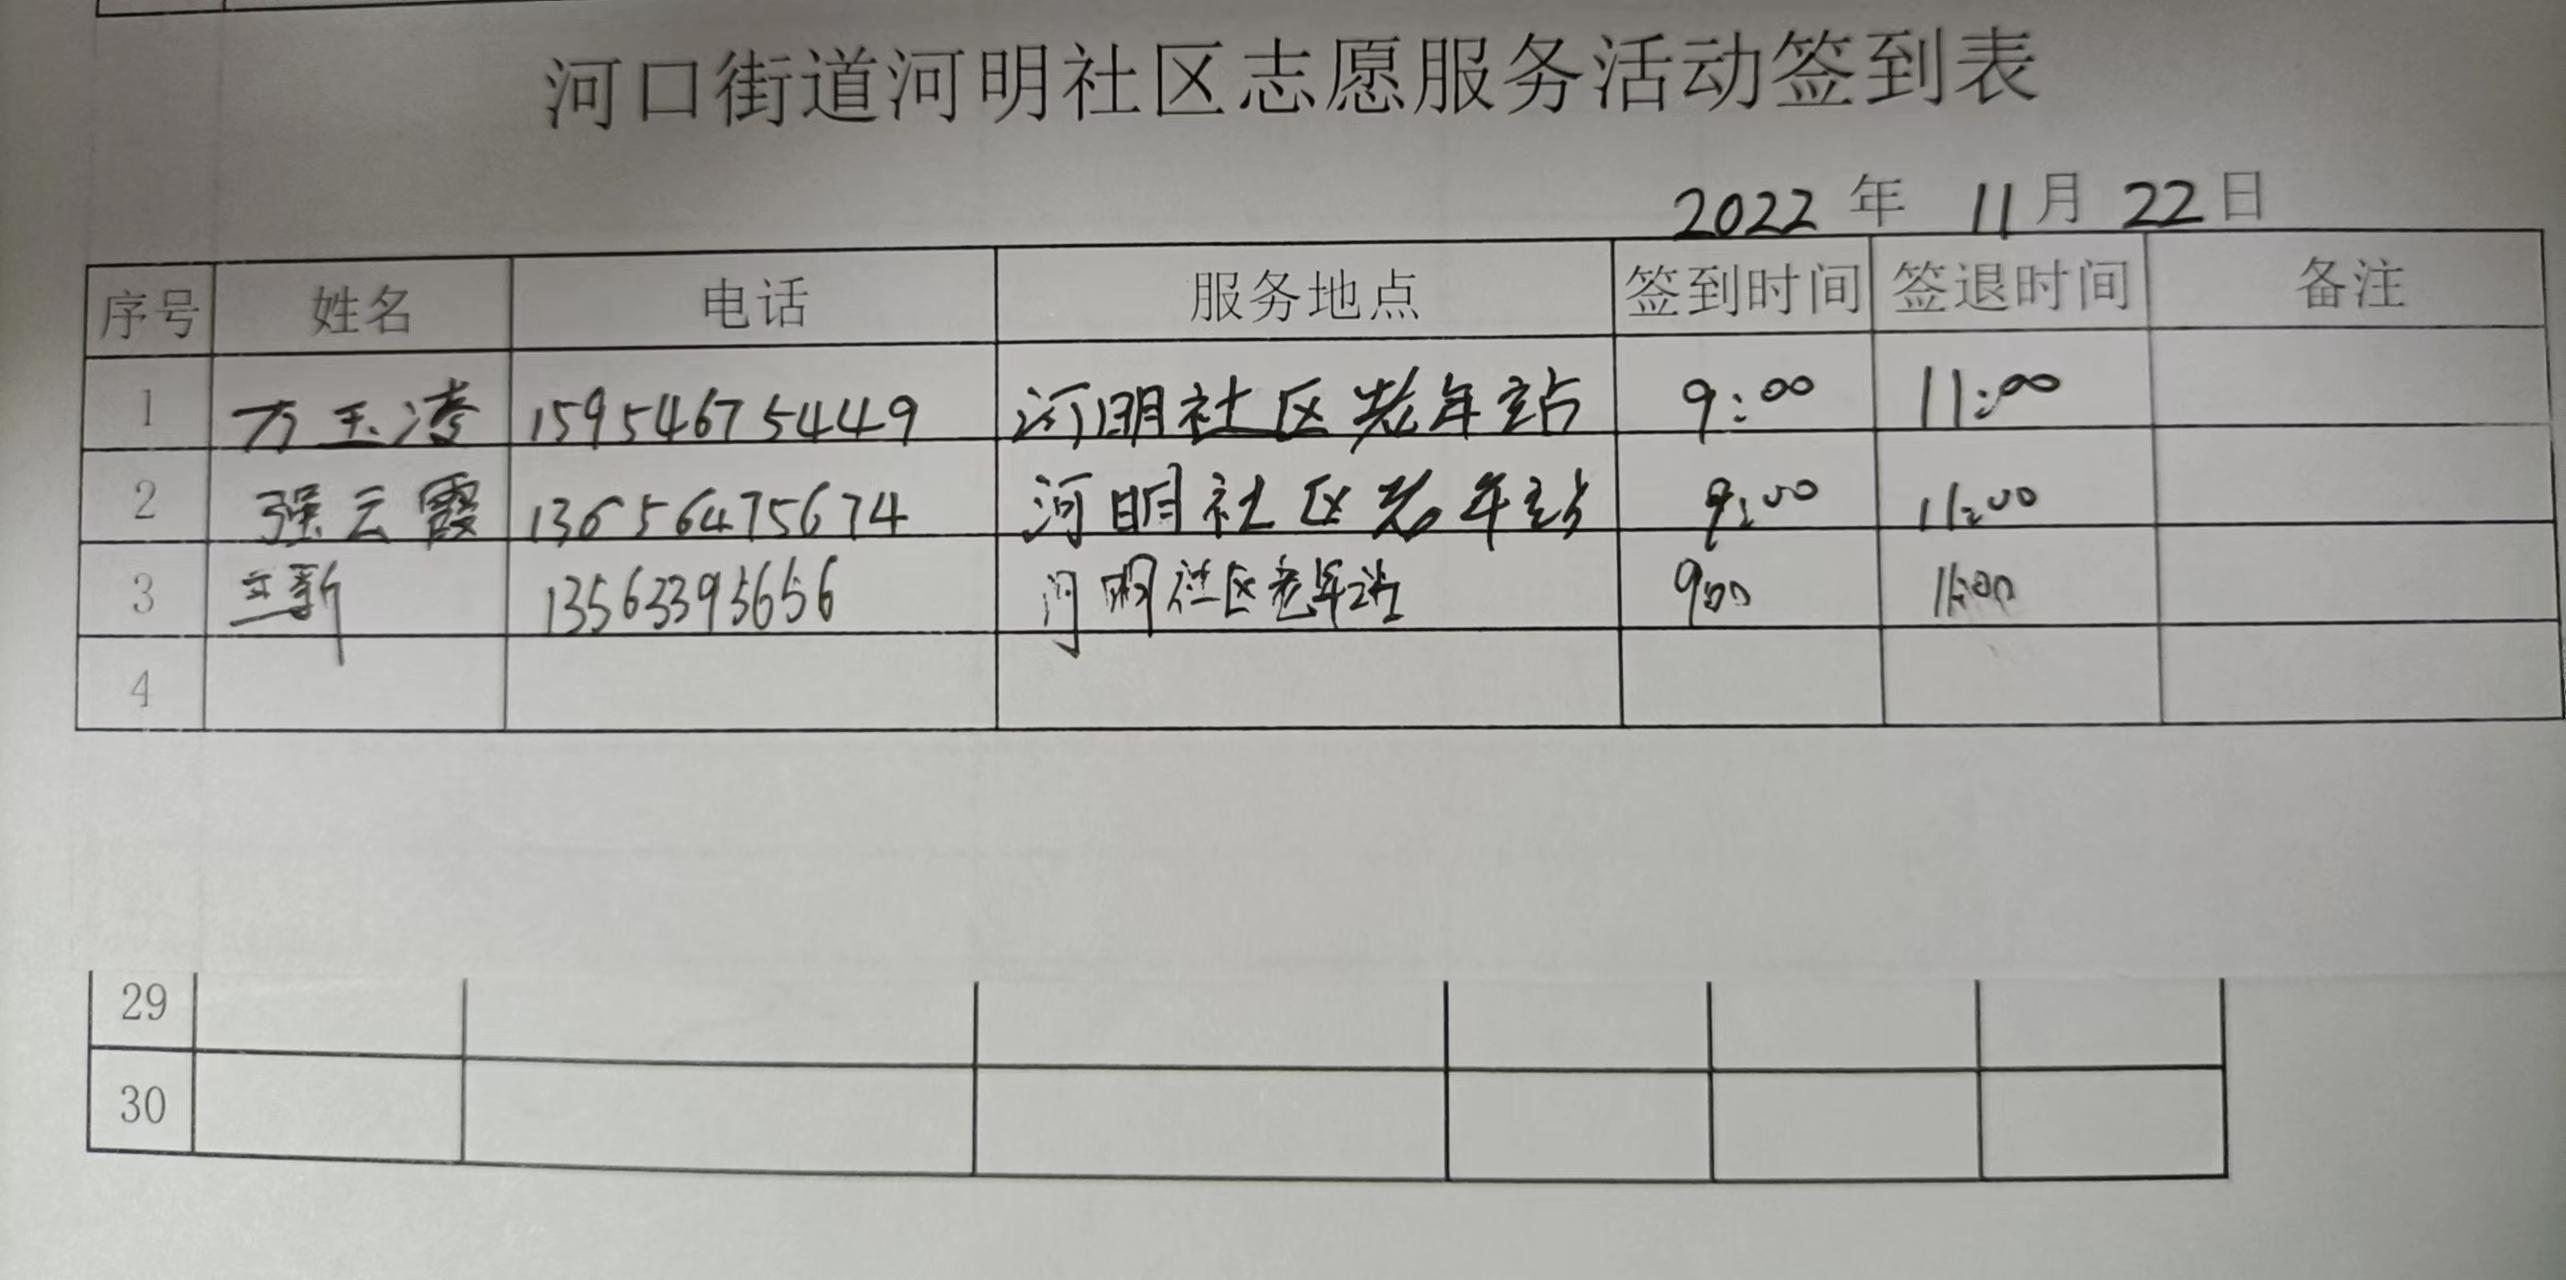 河口街道河明社区志愿服务活动签到表
2022 年 11 月 22 日
序号 姓名 电话 服务地点 签到时间 签退时间 备注
1 方玉凌 15954675449 河明社区老年站 9:00 11:00
2 强云霞 13656475674 河明社区老年站 9:00 11:00
3 13563395656 河明社区老年站 900 11:00
4
29
30